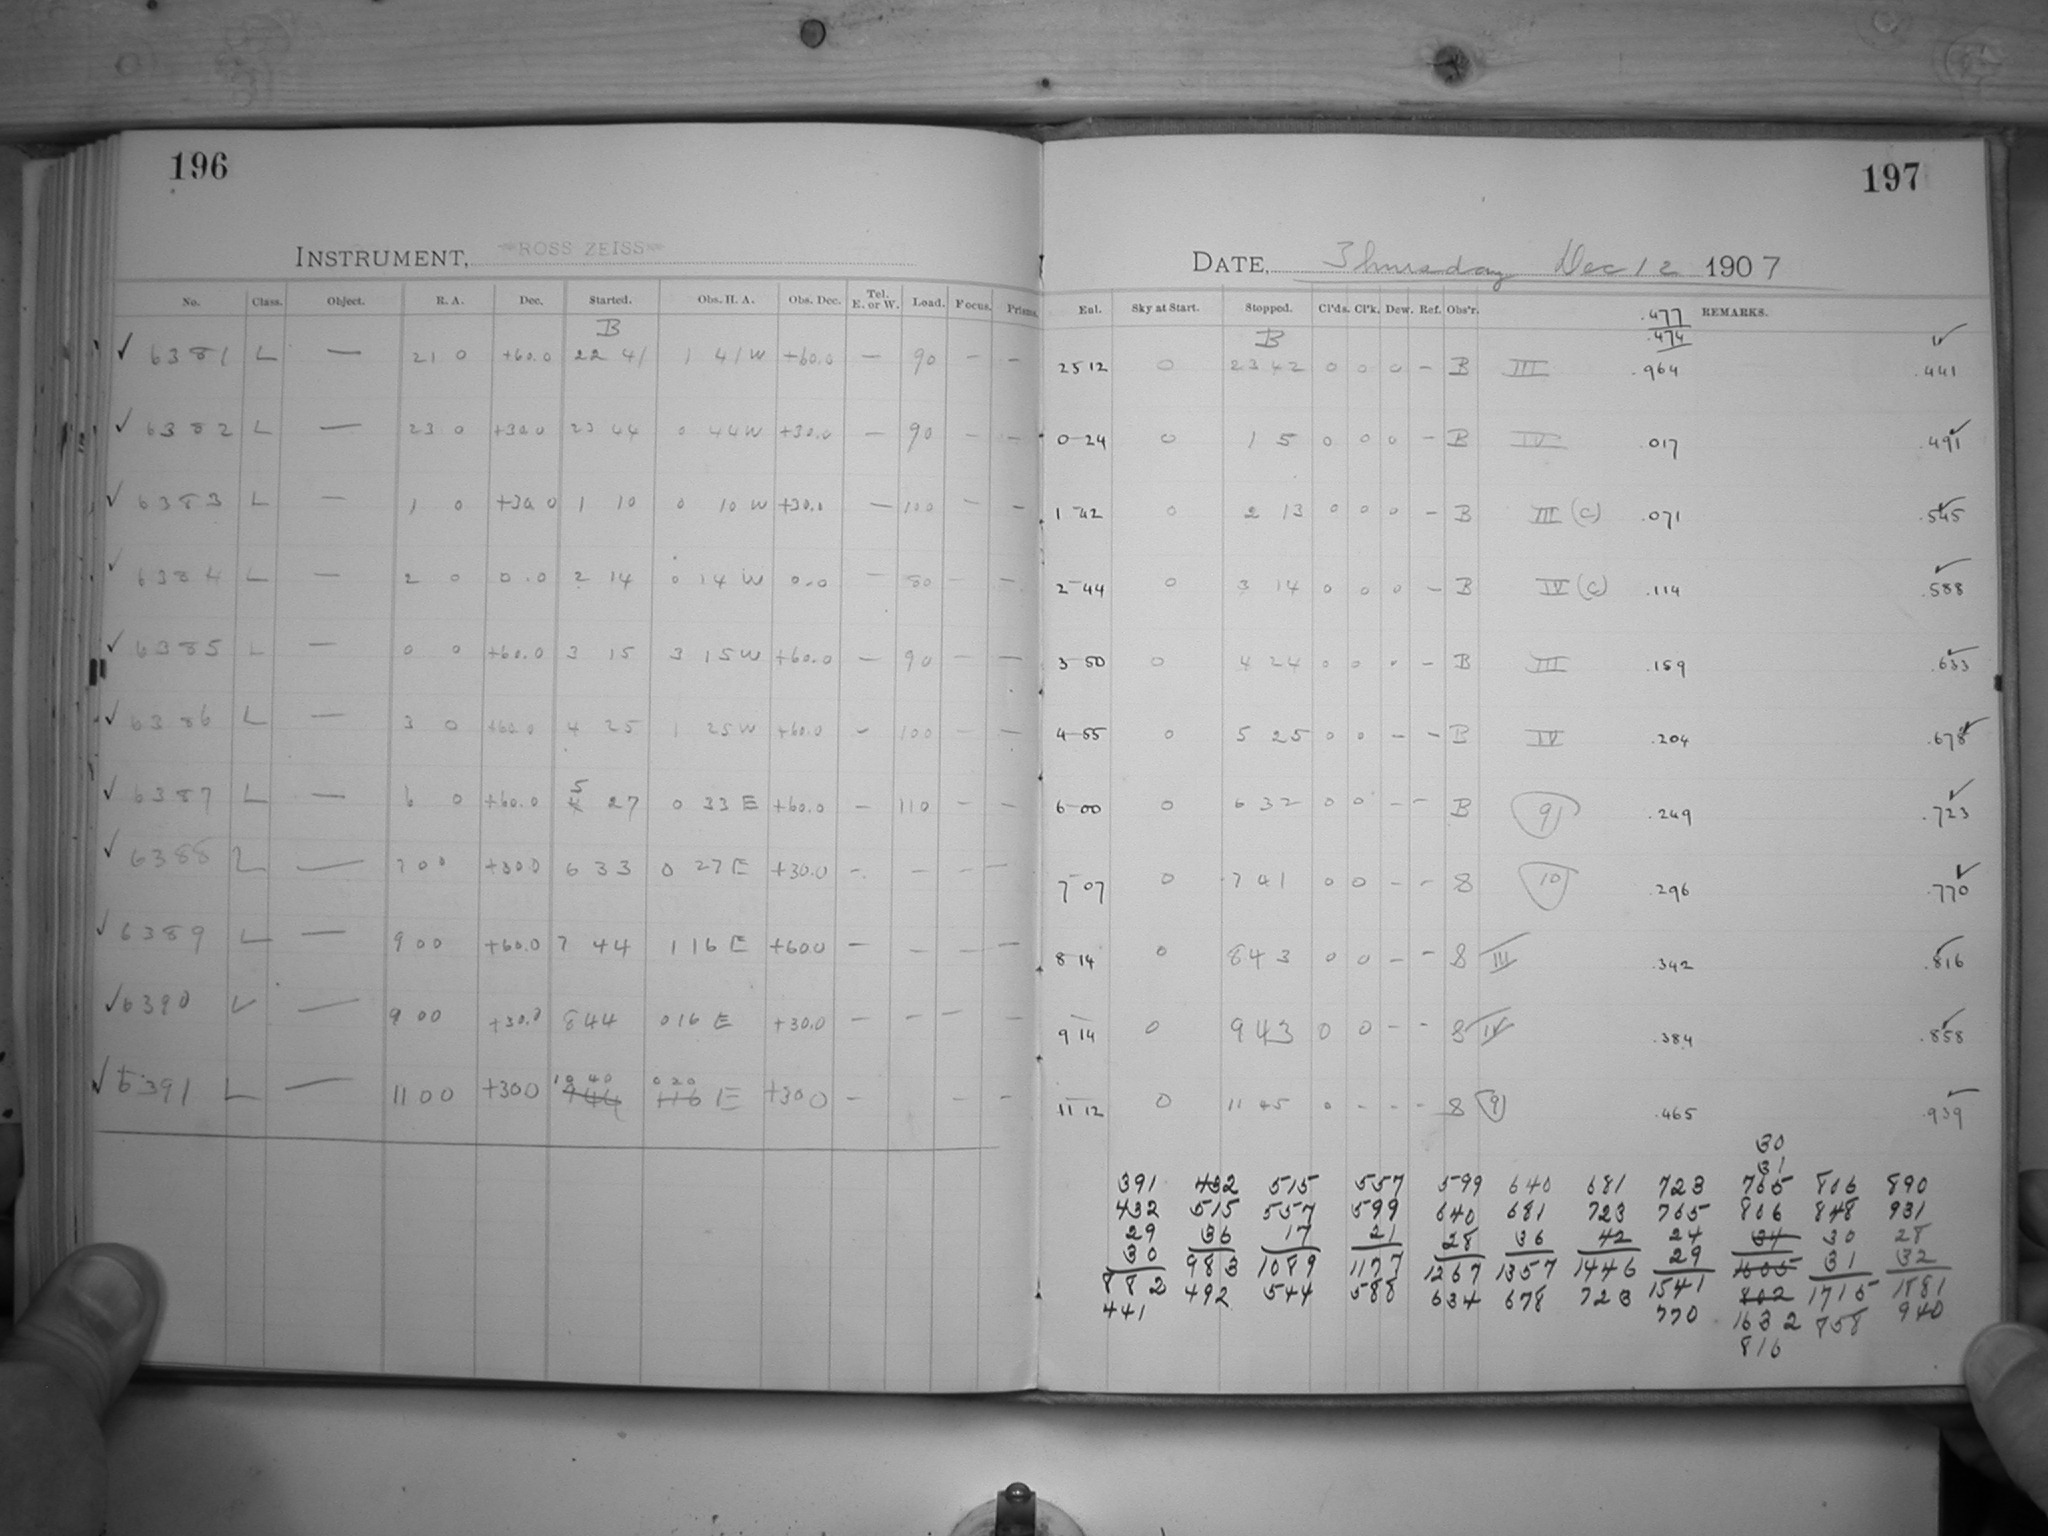 196
INSTRUMENT, ROSS ZEISS
No. Class. Object. R. A. Dec. Started. Obs. H. A. Obs. Dec. Tel. E. or W. Load. Focus. Prisms.
B
✓ 6381 L — 21 0 +60.0 22 41 1 41 W +60.0 — 90 — —
✓ 6382 L — 23 0 +30.0 23 44 0 44 W +30.0 — 90 — —
✓ 6383 L — 1 0 +30.0 1 10 0 10 W +30.0 — 100 — —
✓ 6384 L — 2 0 0.0 2 14 0 14 W 0.0 — 80 — —
✓ 6385 L — 0 0 +60.0 3 15 3 15 W +60.0 — 90 — —
✓ 6386 L — 3 0 +60.0 4 25 1 25 W +60.0 — 100 — —
✓ 6387 L — 6 0 +60.0 5 27 0 33 E +60.0 — 110 — —
✓ 6388 L — 7 00 +30.0 6 33 0 27 E +30.0 — — — —
✓ 6389 L — 9 00 +60.0 7 44 1 16 E +60.0 — — — —
✓ 6390 L — 9 00 +30.0 8 44 0 16 E +30.0 — — — —
✓ 6391 L — 11 00 +30.0 10 40 944 0 20 116 E +30.0 — — —
197
DATE, Thursday Dec 12 1907
Enl. Sky at Start. Stopped. Cl'ds. Cl'k. Dew. Ref. Obs'r. REMARKS.
.477
.474
B
25 12 0 23 42 0 0 0 — B III .964 .441 ✓
0 24 0 1 5 0 0 0 — B IV .017 .491 ✓
1 42 0 2 13 0 0 0 — B III (C) .071 .545 ✓
2 44 0 3 14 0 0 0 — B IV (C) .114 .588 ✓
3 50 0 4 24 0 0 0 — B III .159 .633 ✓
4 55 0 5 25 0 0 — — B IV .204 .678 ✓
6 00 0 6 32 0 0 — — B 9) .249 .723 ✓
7 07 0 7 41 0 0 — — 8 10 .296 .770 ✓
8 14 0 8 43 0 0 — — 8 III .342 .816 ✓
9 14 0 9 43 0 0 — — 8 IV .384 .858 ✓
11 12 0 11 45 0 — — — 8 9) .465 .939 ✓
30
31
391 432 515 557 599 640 681 723 765 806 890
432 515 557 599 640 681 723 765 806 848 931
29 36 17 21 28 36 42 24 34 30 28
30 983 1089 1177 1267 1357 1446 29 1605 31 32
882 492 544 588 634 678 723 1541 802 1715 1881
441 770 1632 858 940
816